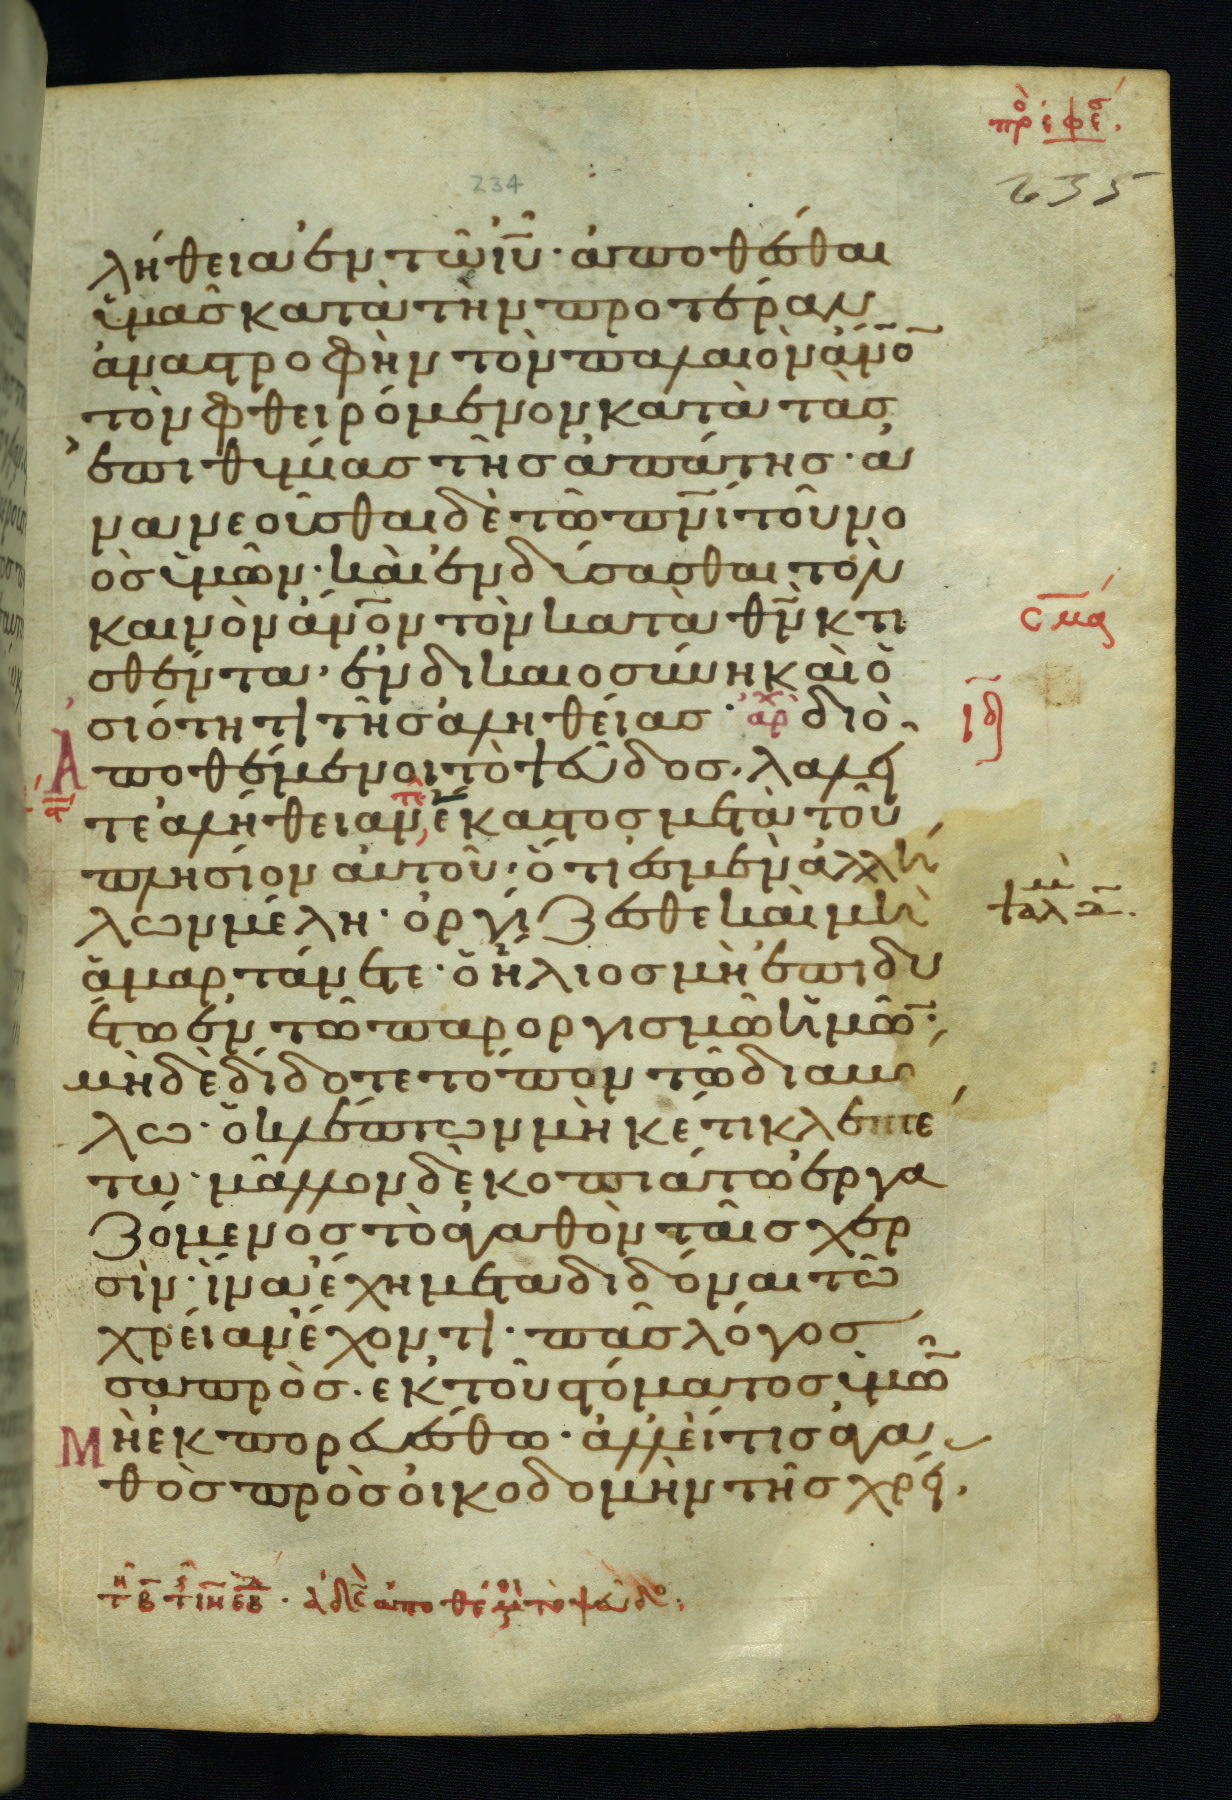 πρὸ ἐφεσ
234
235
λήθεια ἐν τῶ ἰῦ· ἀποθέσθαι
ὑμᾶς κατὰ τὴν προτέραν
ἀναστροφὴν τὸν παλαιὸν ἄνον
τὸν φθειρόμενον κατὰ τὰς
ἐπιθυμίας τῆς ἀπάτης· ἀ
νανεοῦσθαι δὲ τῶ πνι τοῦ νο
ὸς ὑμῶν· καὶ ἐνδύσασθαι τὸν
καινὸν ἄνον τὸν κατὰ θν κτι
σθέντα· ἐν δικαιοσύνη καὶ ὁ
σιότητι τῆς ἀληθείας· ἀρχ διὸ
ἀποθέμενοι τὸ ψεῦδος· λαλεῖ
τε ἀλήθειαν ἕκαστος μετὰ τοῦ
πλησίον αὐτοῦ· ὅτι ἐσμὲν ἀλλή
λων μέλη· ὀργίζεσθε καὶ μὴ
ἁμαρτάνετε· ὁ ἥλιος μὴ ἐπιδυ
έτω ἐν τῶ παροργισμῶ ὑμῶν·
μηδὲ δίδοτε τόπον τῶ διαβό
λω· ὁ κλέπτων μηκέτι κλεπτέ
τω· μᾶλλον δὲ κοπιάτω ἐργα
ζόμενος τὸ ἀγαθὸν ταῖς χερ
σὶν· ἵνα ἔχη μεταδιδόναι τῶ
χρείαν ἔχοντι· πᾶς λόγος
σαπρὸς· ἐκ τοῦ στόματος ὑμῶν
Μὴ ἐκπορευέσθω· ἀλλ' εἴ τις ἀγα
θὸς πρὸς οἰκοδομὴν τῆς χρεί
ψαλ
ἀδελ ἀποθέμενοι τὸ ψεῦδος